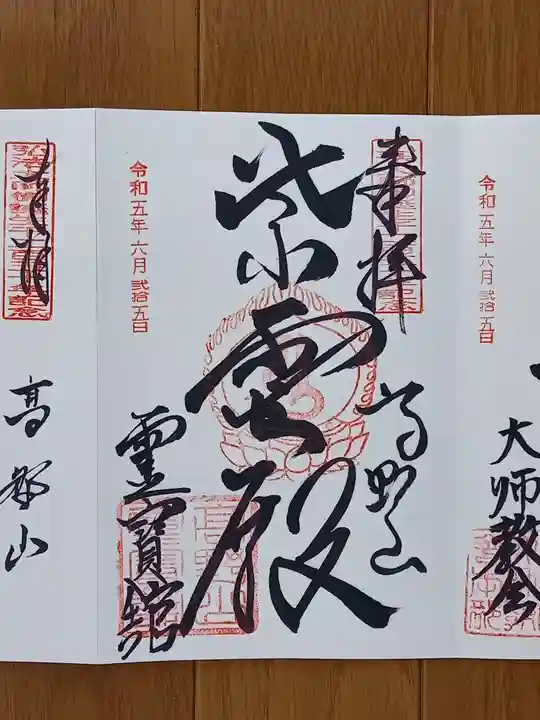 令和五年六月弐拾五日
大師教会
奉拝
高野山
紫雲殿
令和五年六月弐拾五日
霊寳館
奉拝
高野山